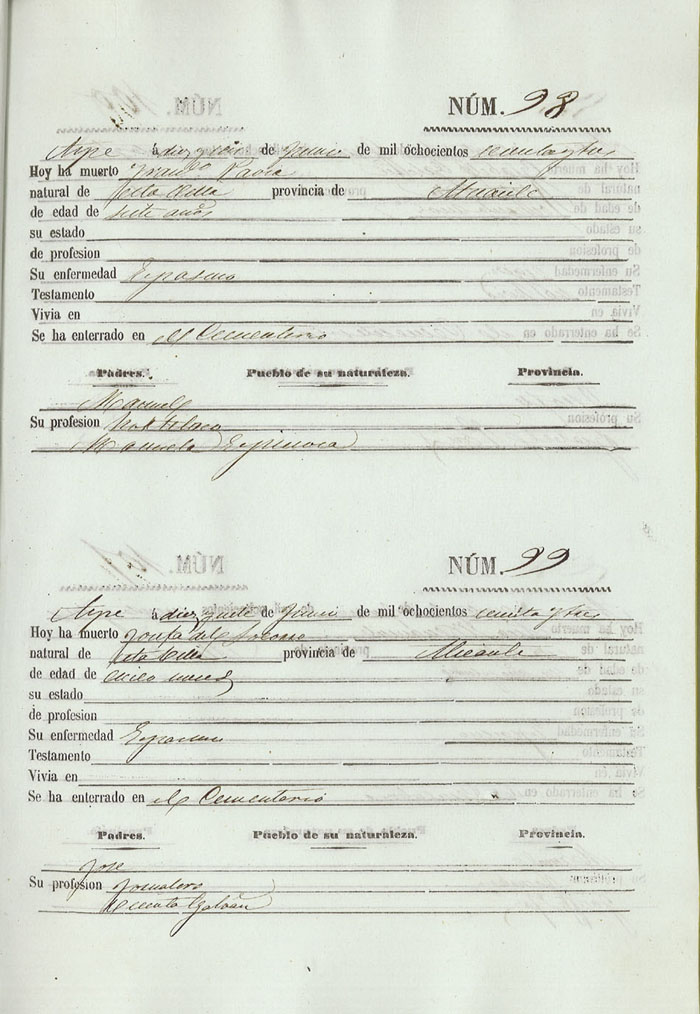 NÚM. 98
Aspe á diez y seis de Junio de mil ochocientos
Hoy ha muerto
natural de esta Villa provincia de Alicante
de edad de siete años
su estado
de profesion
Su enfermedad Espasmo
Testamento
Vivia en
Se ha enterrado en el Cementerio
Padres. Pueblo de su naturaleza. Provincia.
Manuel
Su profesion
Manuela Espinosa
NÚM. 99
Aspe á diez y siete de Junio de mil ochocientos
Hoy ha muerto
natural de esta Villa provincia de Alicante
de edad de cinco meses
su estado
de profesion
Su enfermedad Espasmo
Testamento
Vivia en
Se ha enterrado en el Cementerio
Padres. Pueblo de su naturaleza. Provincia.
Jose
Su profesion Jornalero
Vicenta Galvañ